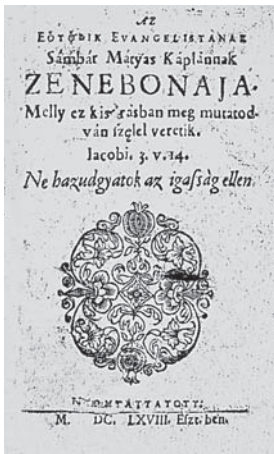 AZ
EÖTÖDIK EVANGELISTÁNAK
Sámbár Mátyas Káplánnak
ZENEBONAJA.
Melly ez kis irásban meg mutatod-
ván szélel veretik.
Iacobi. 3. v. 14.
Ne hazudgyatok az igaſság ellen.
NYOMTATTATOTT:
M. DC. LXVIII. Eſzt. ben.